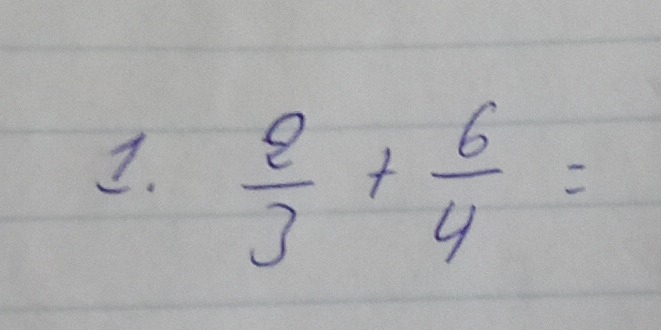 1. 2/3 + 6/4 =